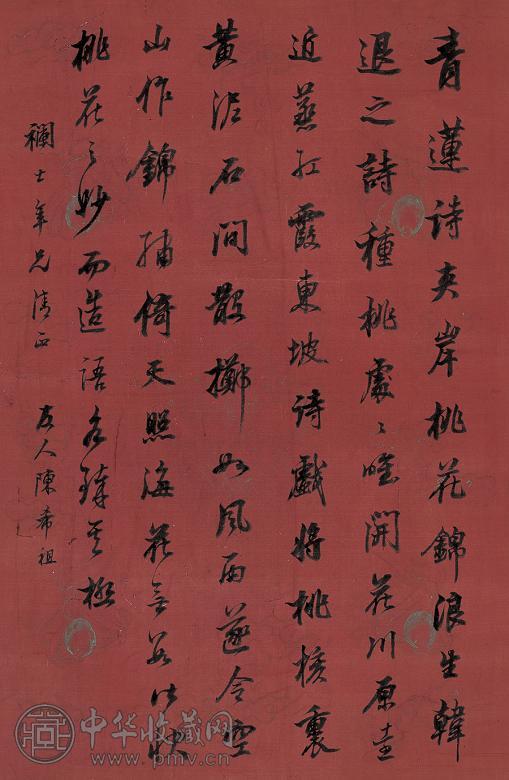 青蓮诗夹岸桃花錦浪生韓
退之詩種桃處〻唯開花川原
近蒸紅霞東坡诗戲将桃核裹
黄泥石间散擲如风雨遂令空
山作錦繡倚天照海花無數皆
桃花之妙而造语各臻其極
襕士年兄清正
友人陳希祖
中华收藏网
www.pmv.cn